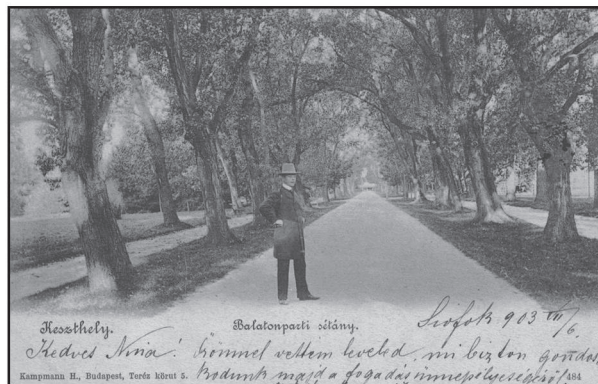 Keszthely.
Balatonparti sétány.
Siófok 903 VII/6.
Kedves Nina! Örömmel vettem leveled, mi bizton gondos,
kodunk majd a fogadás ünnepélyességéről
Kampmann H., Budapest, Teréz körut 5.
484